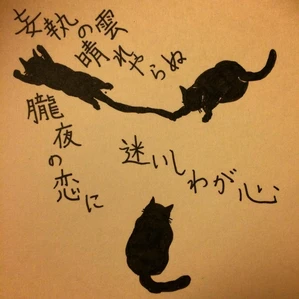 妄執の雲
晴れやらぬ
朧夜の恋に
迷いしわが心